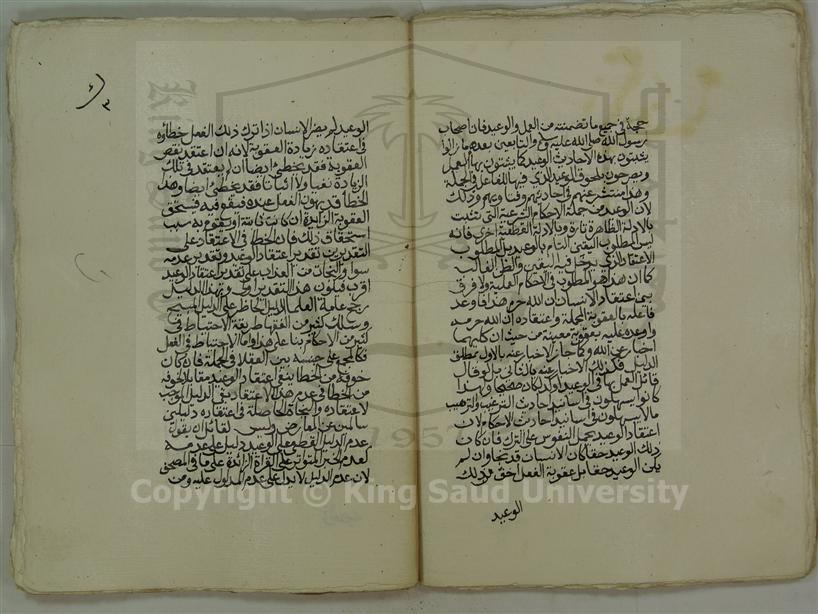 حجة في جميع ما تضمنته من العمل والوعيد فان اصحاب
رسول الله صلى الله عليه وسلم والتابعين بعدهم ما زالوا
يثبتون بهذه الاحاديث الوعيد كما يثبتون بها العمل
ويصرحون بلحوق الوعيد الذي فيها للفاعل في الجملة
وهذا منتشر عنهم في احاديثهم وفتاويهم وذلك
لان الوعيد من جملة الاحكام الشرعية التي تثبت
بالادلة الظاهرة تارة وبالادلة القطعية اخرى فانه
ليس المطلوب اليقين التام بالوعيد بل المطلوب
الاعتقاد الذي يدخل في اليقين والظن الغالب
كما ان هذا هو المطلوب في الاحكام العملية ولا فرق
بين اعتقاد الانسان ان الله حرم هذا واوعد
فاعله بالعقوبة المجملة واعتقاده ان الله حرمه
واوعده عليه بعقوبة معينة من حيث ان كليهما
اخبار عن الله وكما جاز الاخبار عنه بالاول بمطلق
الدليل فكذلك الاخبار عنه بالثاني بل لو قال
قائل العمل بها في الوعيد اوكد لكان صحيحا ولهذا
كانوا يسهلون في اسانيد احاديث الترغيب والترهيب
ما لا يسهلون في اسانيد احاديث الاحكام لان
اعتقاد الوعيد يحمل النفوس على الترك فان كان
ذلك الوعيد حقا كان الانسان قد نجا وان لم
يكن الوعيد حقا بل عقوبة الفعل اخف من ذلك
الوعيد
٣
الوعيد لم يضر الانسان اذا ترك ذلك الفعل خطاؤه
في اعتقاده زيادة العقوبة لانه ان اعتقد نقص
العقوبة فقد يخطئ ايضا وان لم يعتقد في تلك
الزيادة نفيا ولا اثباتا فقد يخطئ ايضا وهذا
الخطا قد يهون الفعل عنده فيقع فيه فيستحق
العقوبة الزائدة ان كانت ثابتة او يقوم به سبب
استحقاق ذلك فاذن الخطا في الاعتقاد على
التقديرين تقدير اعتقاد الوعيد وتقدير عدمه
سوا والنجاة من العذاب على تقدير اعتقاد الوعيد
اقرب فيكون هذا التقدير اولى وبهذا الدليل
رجح عامة العلما الدليل الحاظر على الدليل المبيح
وسلك كثير من الفقها طريقة الاحتياط في
كثير من الاحكام بنا على هذا واما الاحتياط في الفعل
فكالمجمع على حسنه بين العقلا في الجملة فاذا كان
خوفه من الخطا بنفي اعتقاد الوعيد مقابلا لخوفه
من الخطا في عدم هذا الاعتقاد بقي الدليل الموجب
لاعتقاده والنجاة الحاصلة في اعتقاده دليلين
سالمين عن المعارض وليس لقائل ان يقول
عدم الدليل القطعي على الوعيد دليل على عدمه
كعدم الخبر المتواتر على القراة الزائدة على ما في المصحف
لان عدم الدليل لا يدل على عدم المدلول عليه ومن
Copyright © King Saud University
1957